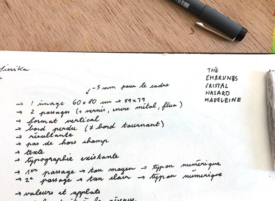 -5 mm pour le cadre
→ 1 image 60 x 80 cm → 89 x 79
→ 2 passages (+ vernis, encre métal, fluo)
→ format vertical
→ bord perdu (≠ bord tournant)
→ résultante
→ pas de hors champ
→ texte
→ typographie existante
→ 1er passage → ton moyen → typon numérique
→ 2e passage → ton clair → typon numérique
→ valeurs et aplats
THÉ
EMBRUNES
CRISTAL
HASARD
MADELEINE